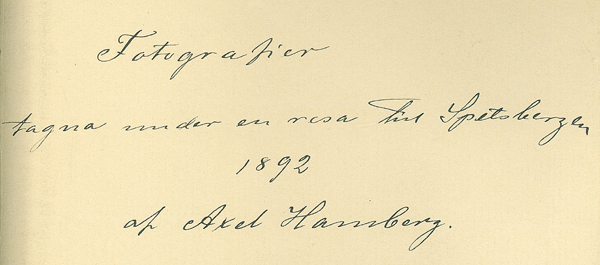 Fotografier
tagna under en resa till Spetsbergen
1892
af Axel Hamberg.